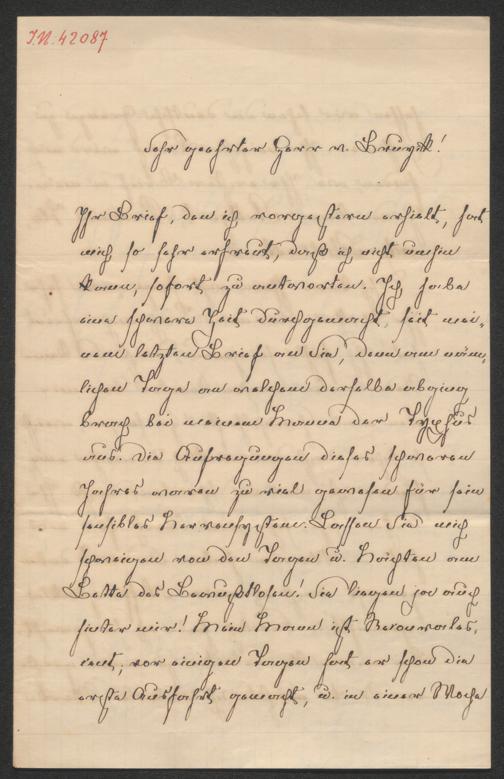 I.N. 42087
Sehr geehrter Herr v. Bruyck!
Ihr Brief, den ich vorgestern erhielt, hat
mich so sehr erfreut, daß ich nicht umhin
kann, sofort zu antworten. Ich habe
eine schwere Zeit durchgemacht seit mei-
nem letzten Brief an Sie, denn am näm-
lichen Tage an welchem derselbe abging
brach bei meinem Manne der Typhus
aus. Die Aufregungen dieses schweren
Jahres waren zu viel gewesen für sein
sensibles Nervensystem. Lassen Sie mich
schweigen von den Tagen u. Nächten am
Bette des Bewußtlosen! Sie liegen ja auch
hinter mir! Mein Mann ist Reconvales-
cent; vor einigen Tagen hat er schon die
erste Ausfahrt gemacht, u. in einer Woche